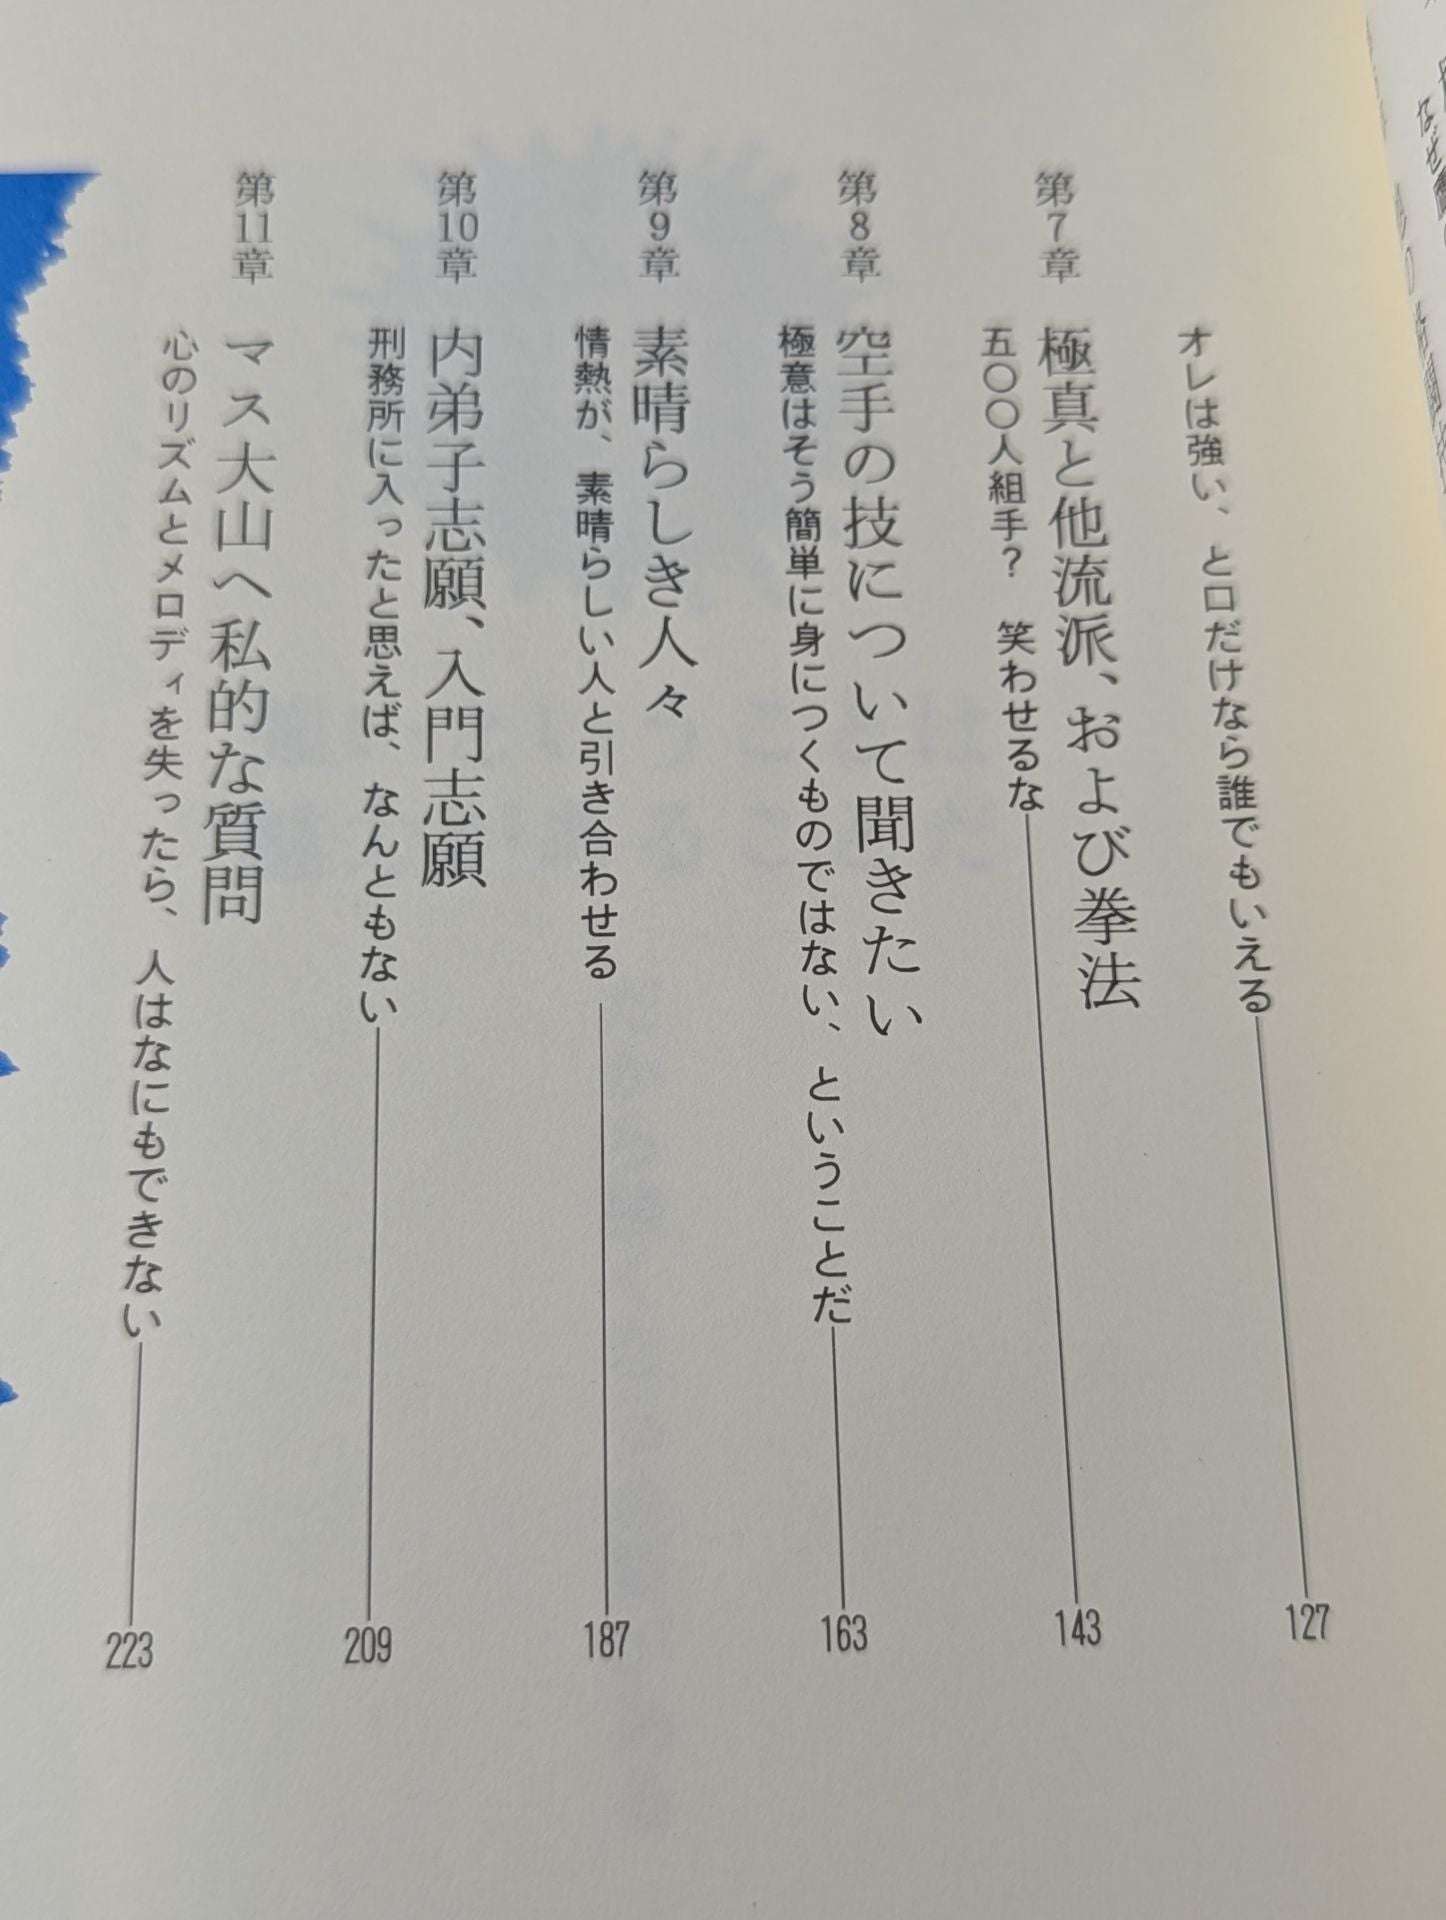 オレは強い、と口だけなら誰でもいえる 127
第7章 極真と他流派、および拳法
五〇〇人組手？ 笑わせるな 143
第8章 空手の技について聞きたい
極意はそう簡単に身につくものではない、ということだ 163
第9章 素晴らしき人々
情熱が、素晴らしい人と引き合わせる 187
第10章 内弟子志願、入門志願
刑務所に入ったと思えば、なんともない 209
第11章 マス大山へ私的な質問
心のリズムとメロディを失ったら、人はなにもできない 223